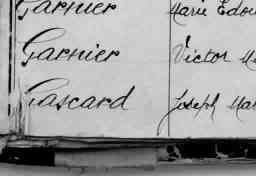 Garnier Marie Edou
Garnier Victor M
Gascard Joseph Ma